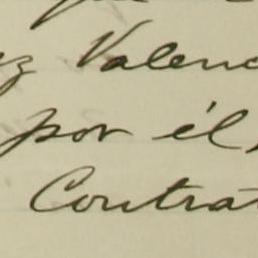 ez Valenc
por él,
Contrat